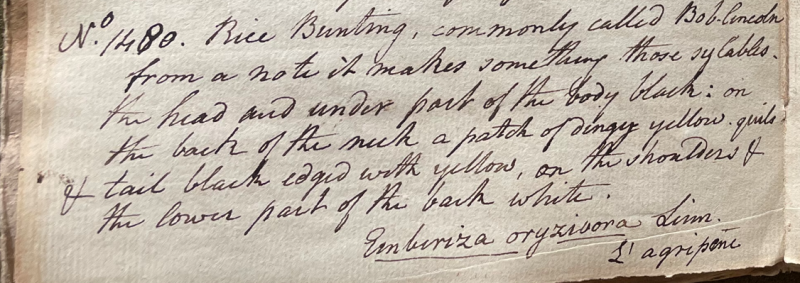 No. 1480. Rice Bunting, commonly called Bob-lincoln
from a note it makes something those sylables.
the head and under part of the body black: on
the back of the neck a patch of dingy yellow. quils
& tail black edged with yellow, on the shoulders &
the lower part of the back white.
Emberiza oryzivora Linn.
L'agripene